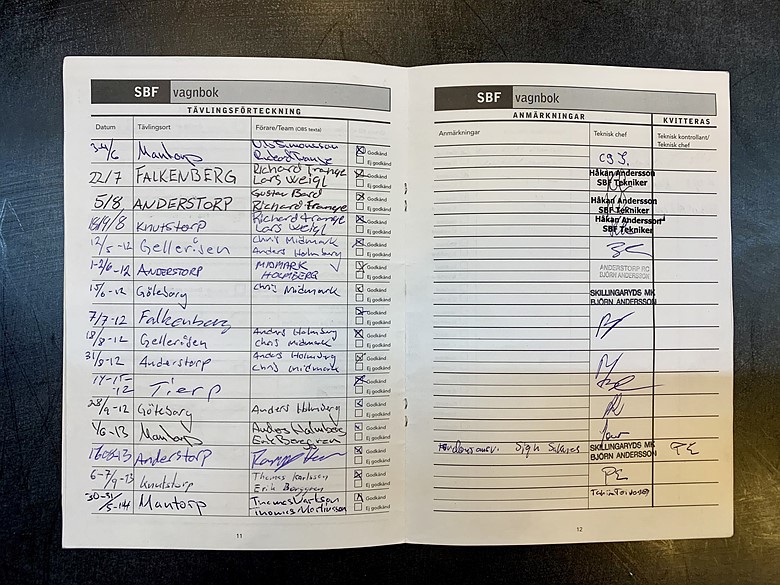 SBF vagnbok
TÄVLINGSFÖRTECKNING
Datum Tävlingsort Förare/Team (OBS texta)
Mantorp Godkänd
Ej godkänd
22/7 FALKENBERG Richard Trange Godkänd
Lars Weigl Ej godkänd
5/8 ANDERSTORP Gustav Bard Godkänd
Richard Trange Ej godkänd
Knutstorp Richard Trange Godkänd
Lars Weigl Ej godkänd
12/5-12 Gelleråsen Chris Midmark Godkänd
Anders Holmberg Ej godkänd
1-2/6-12 ANDERSTORP MIDMARK Godkänd
HOLMBERG Ej godkänd
15/6-12 Göteborg Chris Midmark Godkänd
Ej godkänd
7/7-12 Falkenberg Godkänd
Ej godkänd
18/8-12 Gelleråsen Anders Holmberg Godkänd
Chris Midmark Ej godkänd
31/8-12 Anderstorp Anders Holmberg Godkänd
Chris Midmark Ej godkänd
-12 Tierp Godkänd
Ej godkänd
28/9-12 Göteborg Anders Holmberg Godkänd
Ej godkänd
1/6-13 Mantorp Anders Holmberg Godkänd
Erik Berggren Ej godkänd
Anderstorp Godkänd
Ej godkänd
6-7/9-13 Knutstorp Thomas Karlsson Godkänd
Erik Berggren Ej godkänd
30-31/5-14 Mantorp Thomas Karlsson Godkänd
Ej godkänd
11
SBF vagnbok
ANMÄRKNINGAR KVITTERAS
Anmärkningar Teknisk chef Teknisk kontrollant/
Teknisk chef
Håkan Andersson
SBF Tekniker
Håkan Andersson
SBF Tekniker
Håkan Andersson
SBF Tekniker
ANDERSTORP RC
BJÖRN ANDERSSON
SKILLINGARYDS MK
BJÖRN ANDERSSON
SKILLINGARYDS MK
BJÖRN ANDERSSON
12